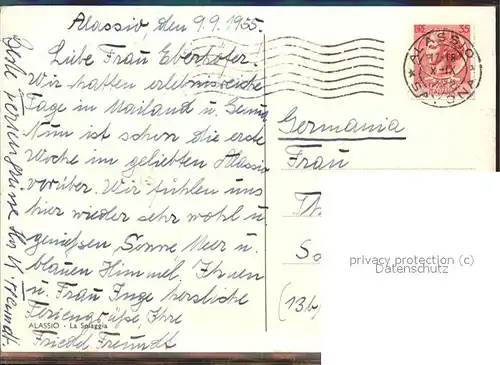 Alassio, den 9.9.1955
Liebe Frau Eberhofer.
Wir hatten erlebnisreiche
Tage in Mailand u. Genua
Nun ist schon die erste
Woche im geliebten Alassio
vorüber. Wir fühlen uns
hier wieder sehr wohl u.
genießen Sonne Meer u.
blauen Himmel. Ihnen
u. Frau Inge herzliche
Feriengrüße, Ihre
ALASSIO - La Spiaggia
Friedel Freundt
Beste Feriengrüße Ihr
35
ALASSIO
Germania
Frau
Th
So
(13b)
privacy protection (c)
Datenschutz (c)